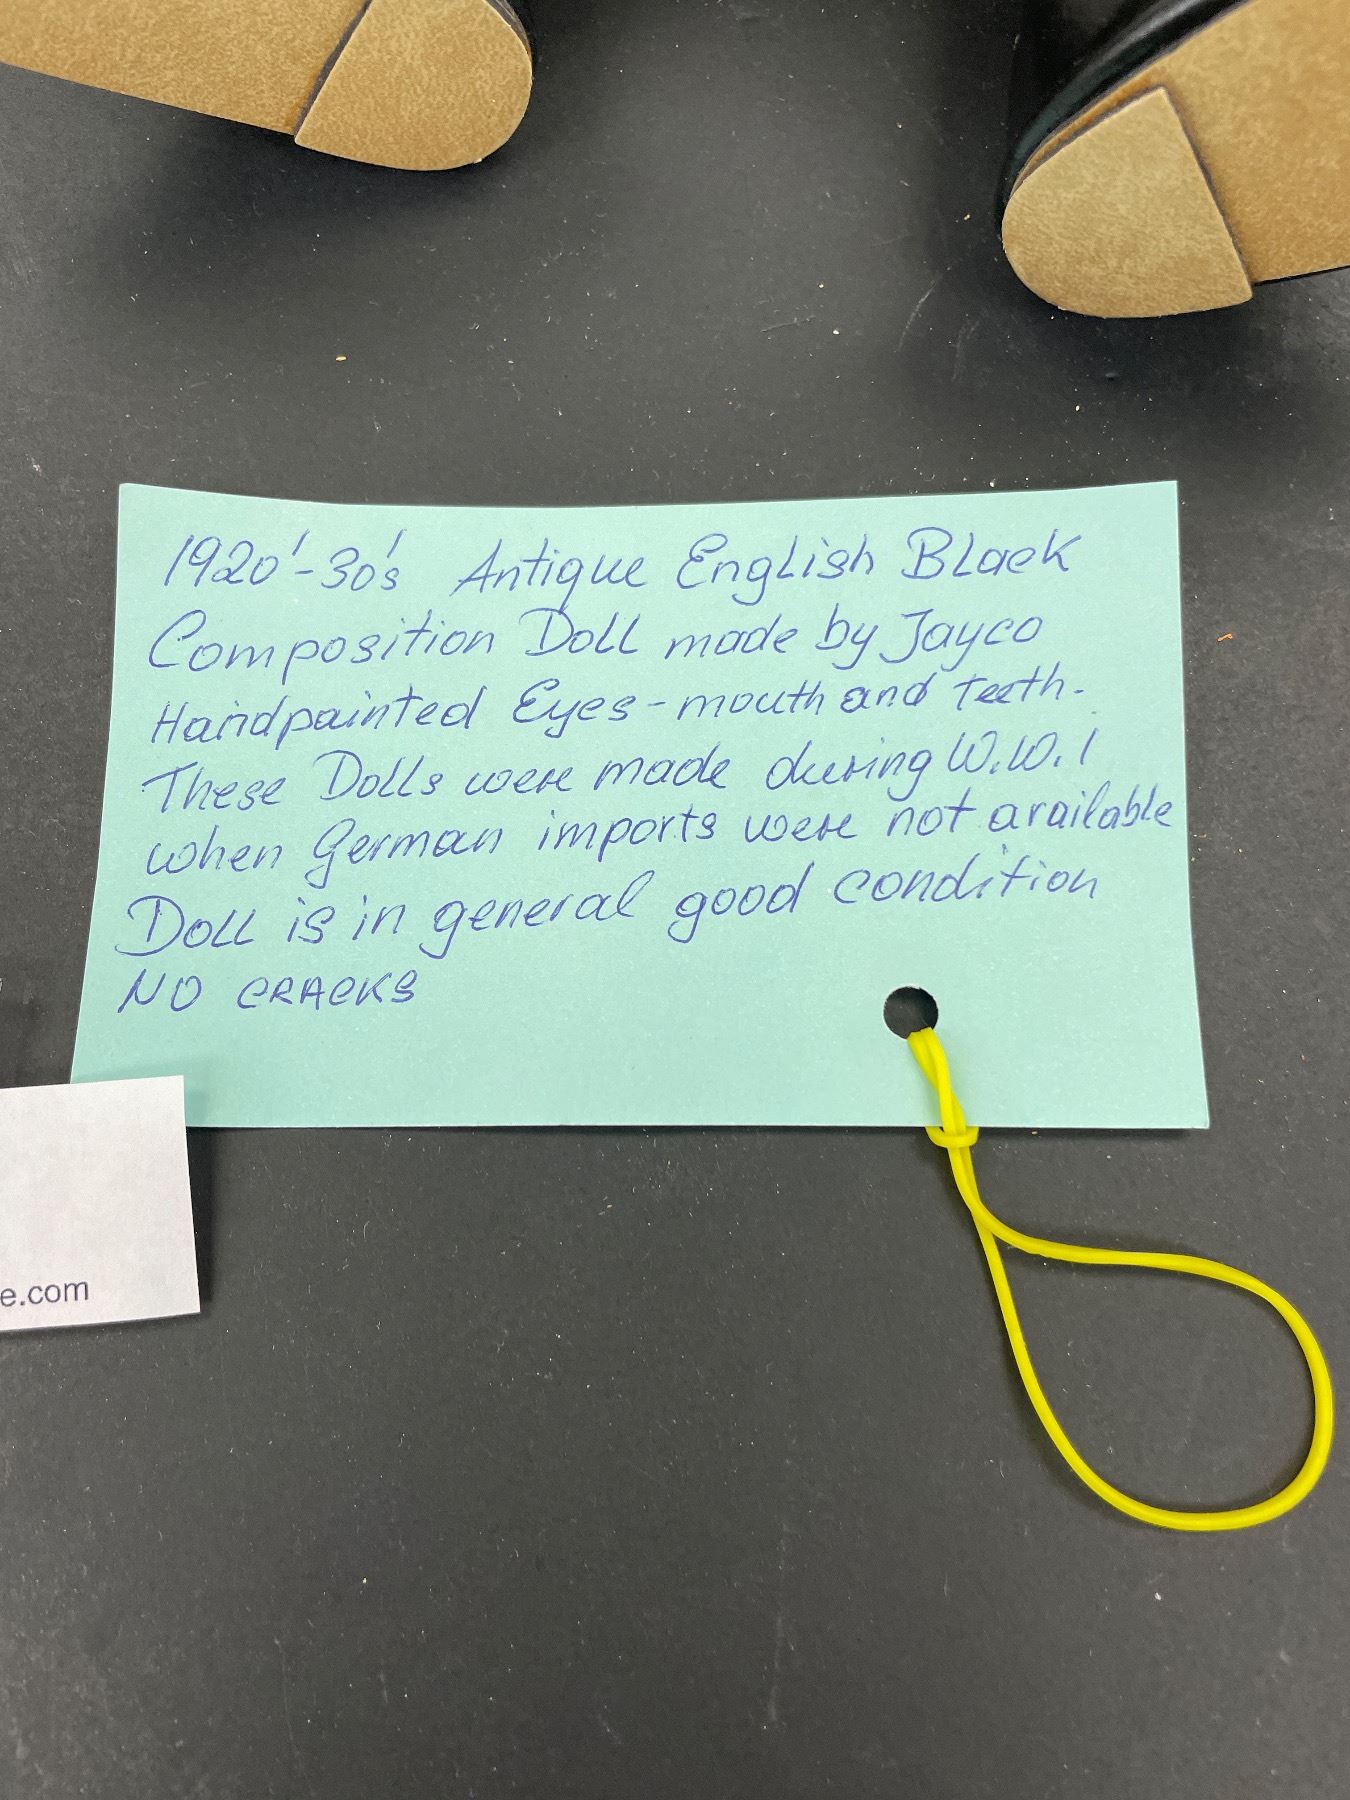 1920'-30's Antique English Black
Composition Doll made by Jayco
Handpainted Eyes-mouth and Teeth.
These Dolls were made during W.W.1
when German imports were not available
Doll is in general good condition
NO CRACKS
e.com